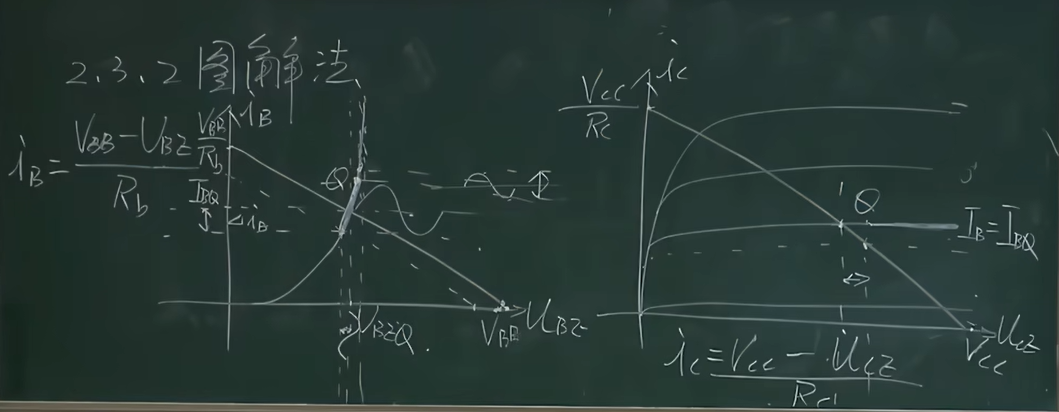 2.3.2 图解法
i_B = (V_BB - U_BE) / R_b
V_BB / R_b
i_B
I_BQ
Δi_B
Q
U_BEQ
V_BB
U_BE
V_CC / R_c
i_C
Q
I_B = I_BQ
U_CE
V_CC
i_C = (V_CC - U_CE) / R_c